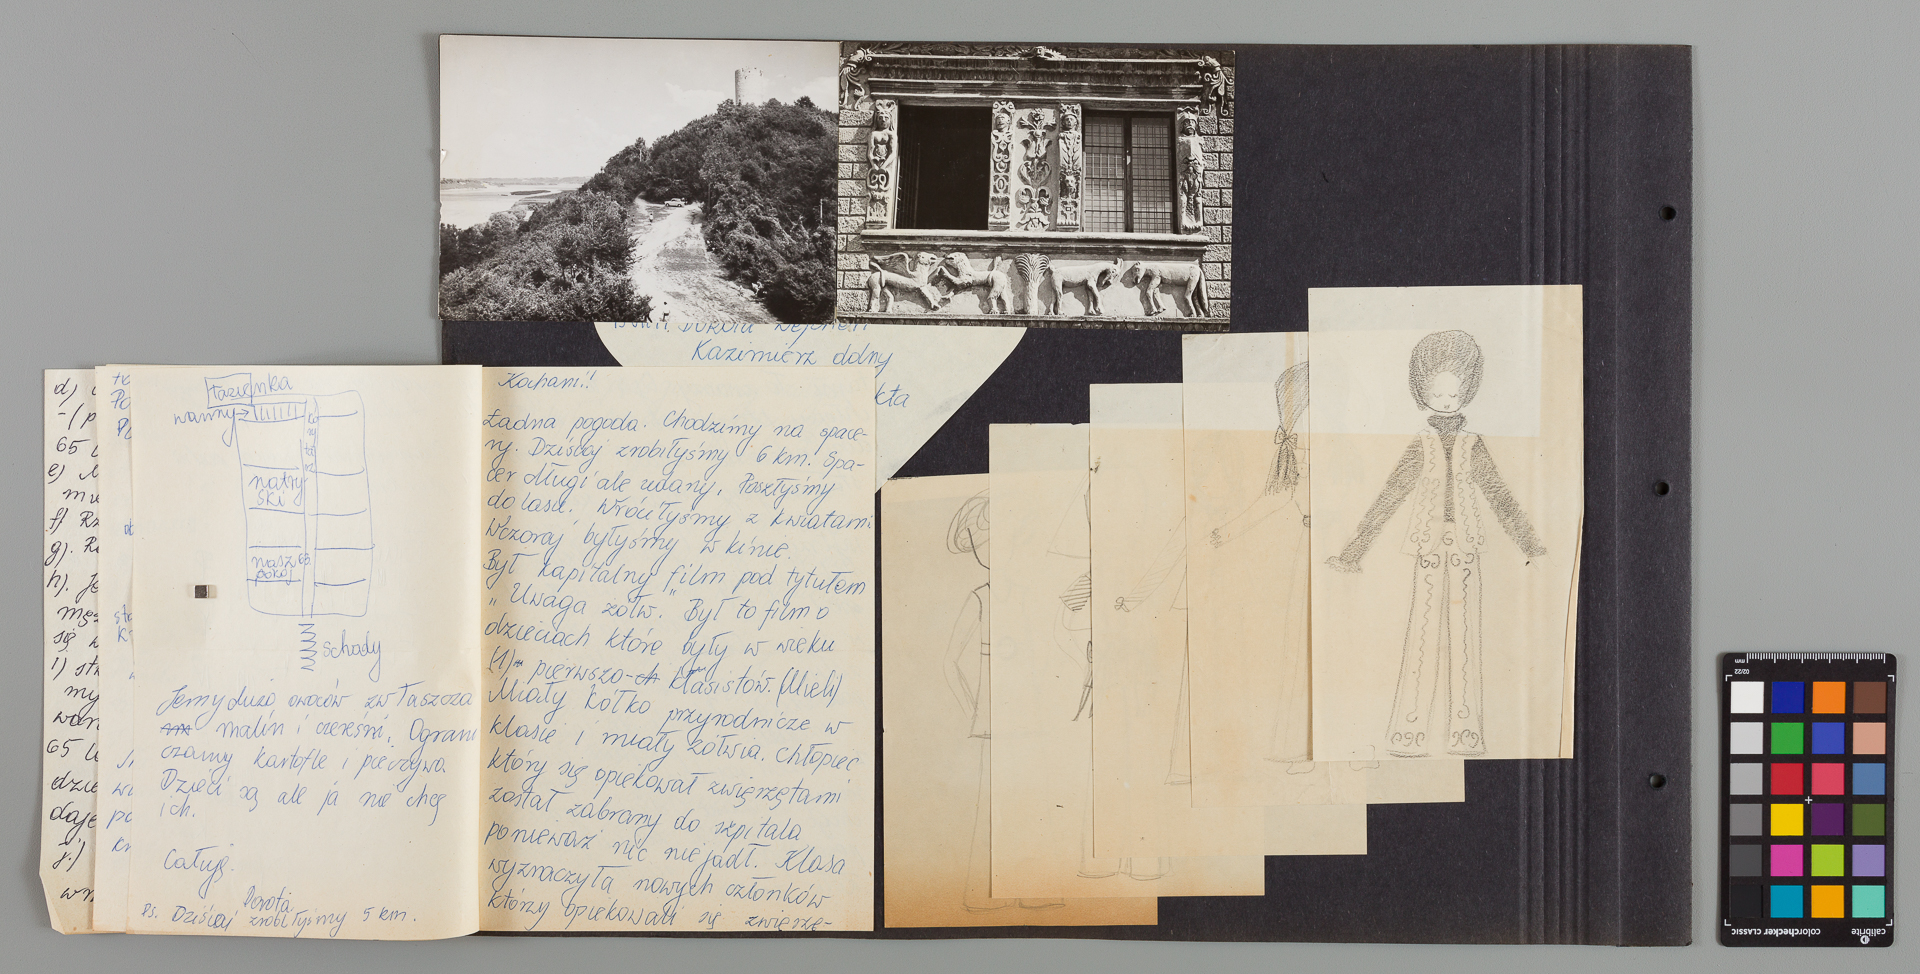 Kazimierz dolny
kta
d)
- (p
65
e) M
mie
f) Rz
g). Ro
h). Je
się w
i) st
my
wan
65
dzie
daje
j.)
Po
sta
Łazienka
wanny →
natry
ski
nasz 65
pokój
schady
Jemy dużo owoców zwłaszcza
malin i czereśni. Ograni
czamy kartofle i pieczywa
Dzieci są ale ja nie chcę
ich.
Całuję.
Dorota
Ps. Dzisiaj zrobiłyśmy 5 km.
Kochani!!
Ładna pogoda. Chodzimy na space-
ry. Dzisiaj zrobiłyśmy 6 km. Spa-
cer długi ale udany. Poszłyśmy
do lasu. Wróciłyśmy z kwiatami
Wczoraj byłyśmy w kinie.
Był kapitalny film pod tytułem
„Uwaga żółw." Był to film o
dzieciach które były w wieku
(1) pierwszo- klasistów. (Mieli)
Miały kółko przyrodnicze w
klasie i miały żółwia. Chłopiec
który się opiekował zwięrzętami
został zabrany do szpitala
ponieważ nic nie jadł. Klasa
wyznaczyła nowych członków
którzy opiekowali się zwięrzę-
mm
02/22
calibrite
colorchecker CLASSIC